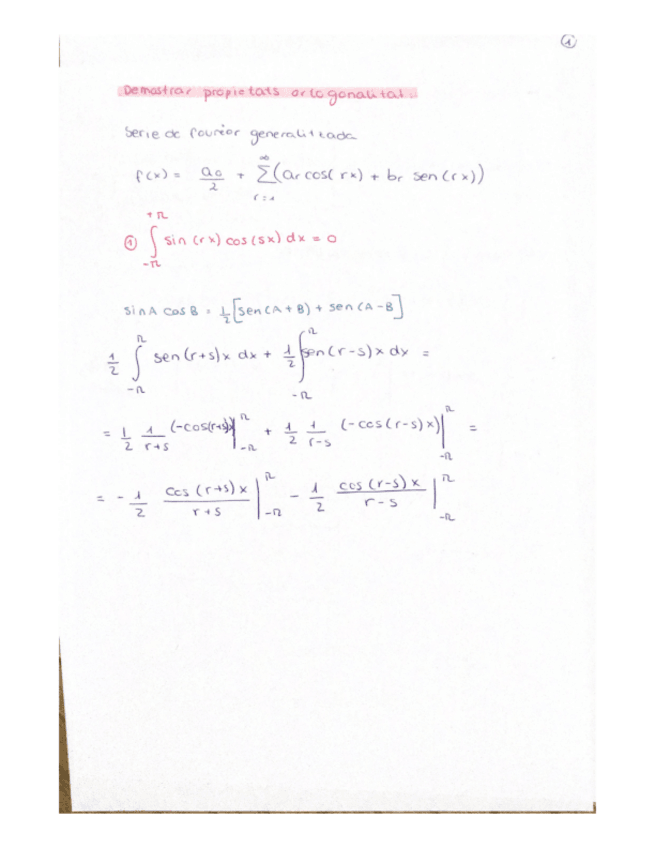 1
Demostrar propietats ortogonalitat.
Serie de fourier generalitzada
f(x) = a₀/2 + ∑_{r=1}^{∞} (ar cos(rx) + br sen(rx))
① ∫_{-π}^{+π} sin(rx) cos(sx) dx = 0
sin A cos B = 1/2 [sen(A+B) + sen(A-B]
1/2 ∫_{-π}^{π} sen(r+s)x dx + 1/2 ∫_{-π}^{π} sen(r-s)x dx =
= 1/2 1/(r+s) (-cos(r+s)x)|_{-π}^{π} + 1/2 1/(r-s) (-cos(r-s)x)|_{-π}^{π} =
= - 1/2 cos(r+s)x/(r+s) |_{-π}^{π} - 1/2 cos(r-s)x/(r-s) |_{-π}^{π}